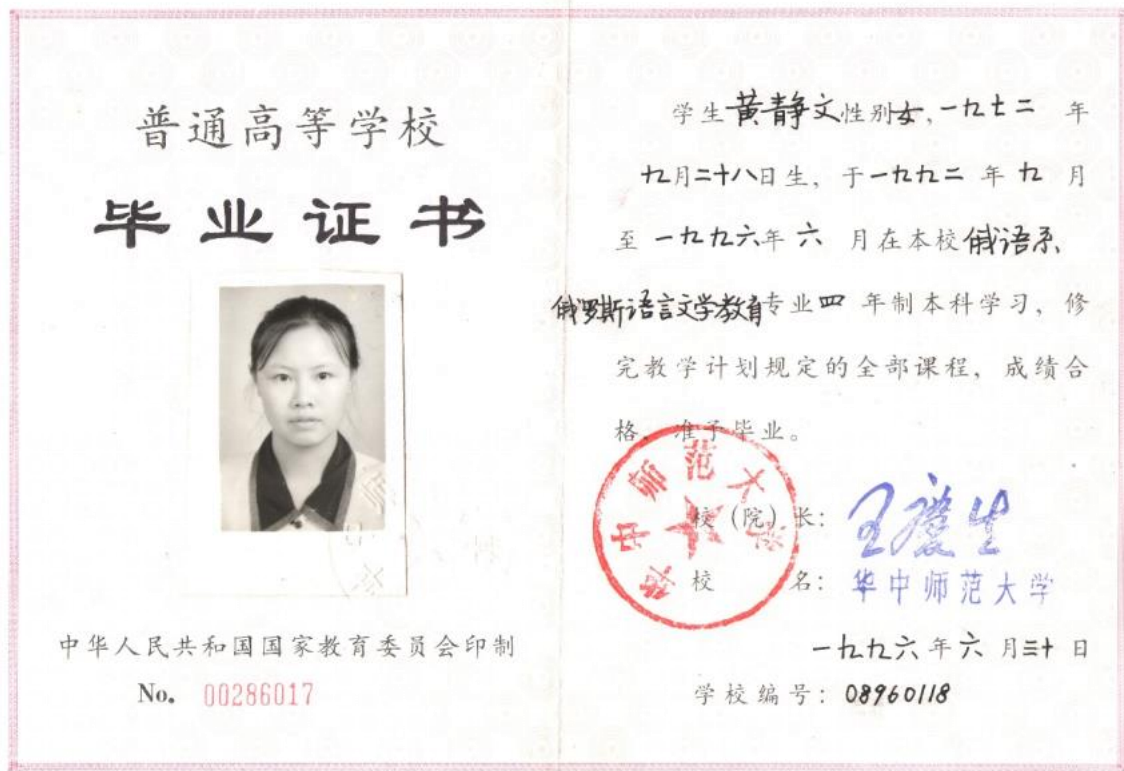 普通高等学校
毕业证书
中华人民共和国国家教育委员会印制
No. 00286017
学生黄静文性别女,一九七二 年
九月二十八日生, 于一九九二 年 九 月
至 一九九六年 六 月在本校俄语系
俄罗斯语言文学教育专业四 年制本科学习, 修
完教学计划规定的全部课程, 成绩合
格, 准予毕业。
华中师范大学
校(院)长: 王庆生
校 名: 华中师范大学
一九九六 年 六 月三十 日
学校编号: 08960118